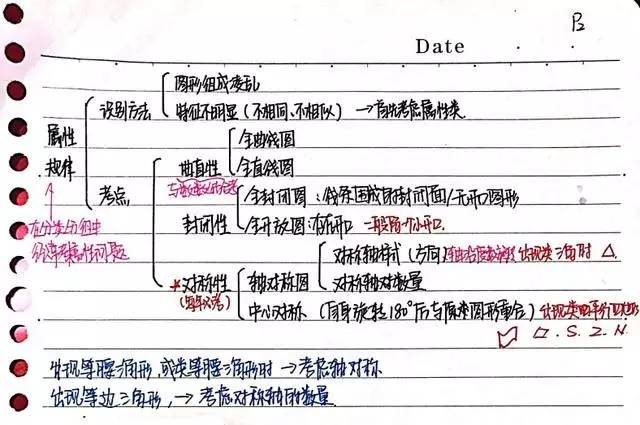 P2
Date
图形组成凌乱
识别方法
特征不明显（不相同、不相似）→首先考虑属性类
属性
规律
全曲线图
曲直性
全直线图
考点
全封闭图：线条围成的封闭面/无开口图形
封闭性
全开放图：有开口 一般留一个小开口.
在分类分组中
对称轴样式（方向）
出现类三角时 △
轴对称图
对称轴对数量
*对称性
中心对称（自身旋转180°后与原来图形重合）出现类平行四边形
▱.S.Z.N.
出现等腰三角形,或类等腰三角形时→考虑轴对称
出现等边三角形,→考虑对称轴的数量